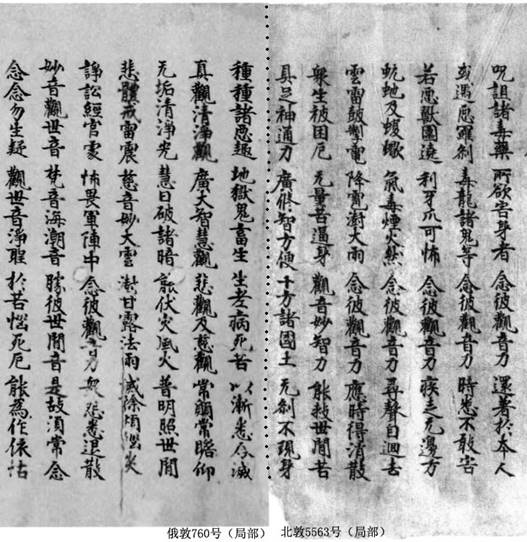 呪詛諸毒藥 所欲害身者 念彼觀音力 還著於本人
或遇惡羅刹 毒龍諸鬼等 念彼觀音力 時悉不敢害
若惡獸圍遶 利牙爪可怖 念彼觀音力 疾走无邊方
蚖虵及蝮蠍 氣毒煙火燃 念彼觀音力 尋聲自迴去
雲雷鼓掣電 降雹澍大雨 念彼觀音力 應時得消散
衆生被困厄 无量苦逼身 觀音妙智力 能救世間苦
具足神通力 廣修智方便 十方諸國土 无刹不現身
種種諸惡趣 地獄鬼畜生 生老病死苦 以漸悉令滅
真觀清淨觀 廣大智慧觀 悲觀及慈觀 常願常瞻仰
无垢清淨光 慧日破諸暗 能伏灾風火 普明照世間
悲體戒雷震 慈音妙大雲 澍甘露法雨 滅除煩惱炎
諍訟經官處 怖畏軍陣中 念彼觀音力 衆怨悉退散
妙音觀世音 梵音海潮音 勝彼世間音 是故須常念
念念勿生疑 觀世音淨聖 於苦惱死厄 能為作依怙
俄敦760号（局部） 北敦5563号（局部）